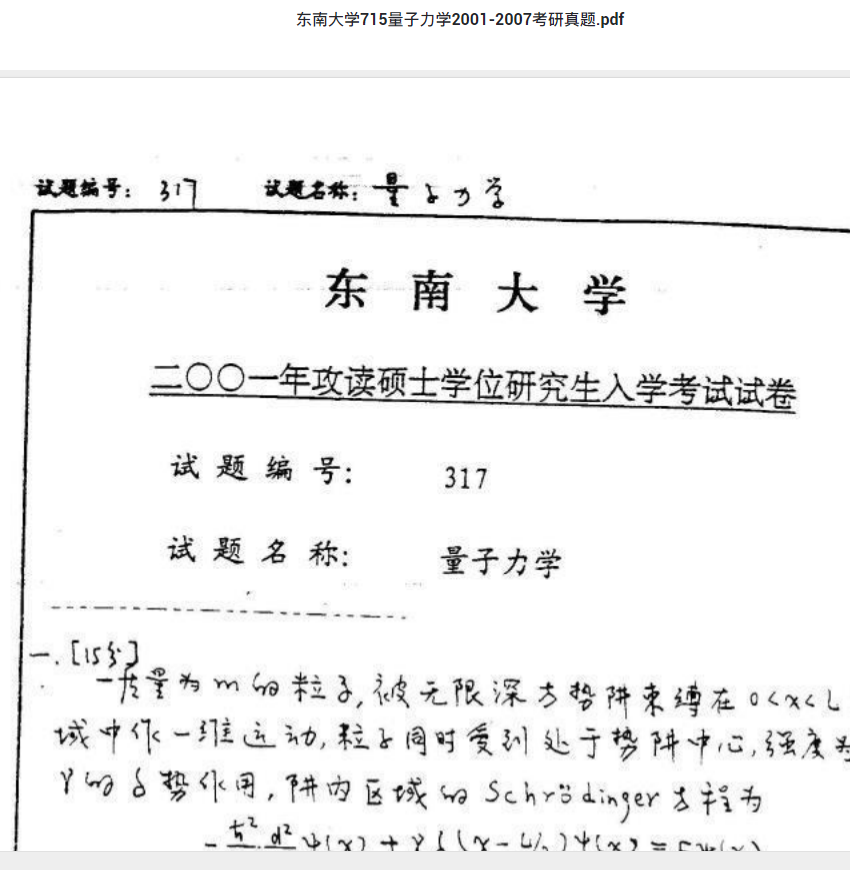 东南大学715量子力学2001-2007考研真题.pdf
试题编号: 317 试题名称: 量子力学
东南大学
二〇〇一年攻读硕士学位研究生入学考试试卷
试题编号: 317
试题名称: 量子力学
一. [15分]
一质量为m的粒子,被无限深方势阱束缚在0<x<L
域中作一维运动,粒子同时受到处于势阱中心,强度为
γ的δ势作用,阱内区域的Schrödinger方程为
-ħ² d² ψ(x) + γδ(x-L/2)ψ(x) = Eψ(x)